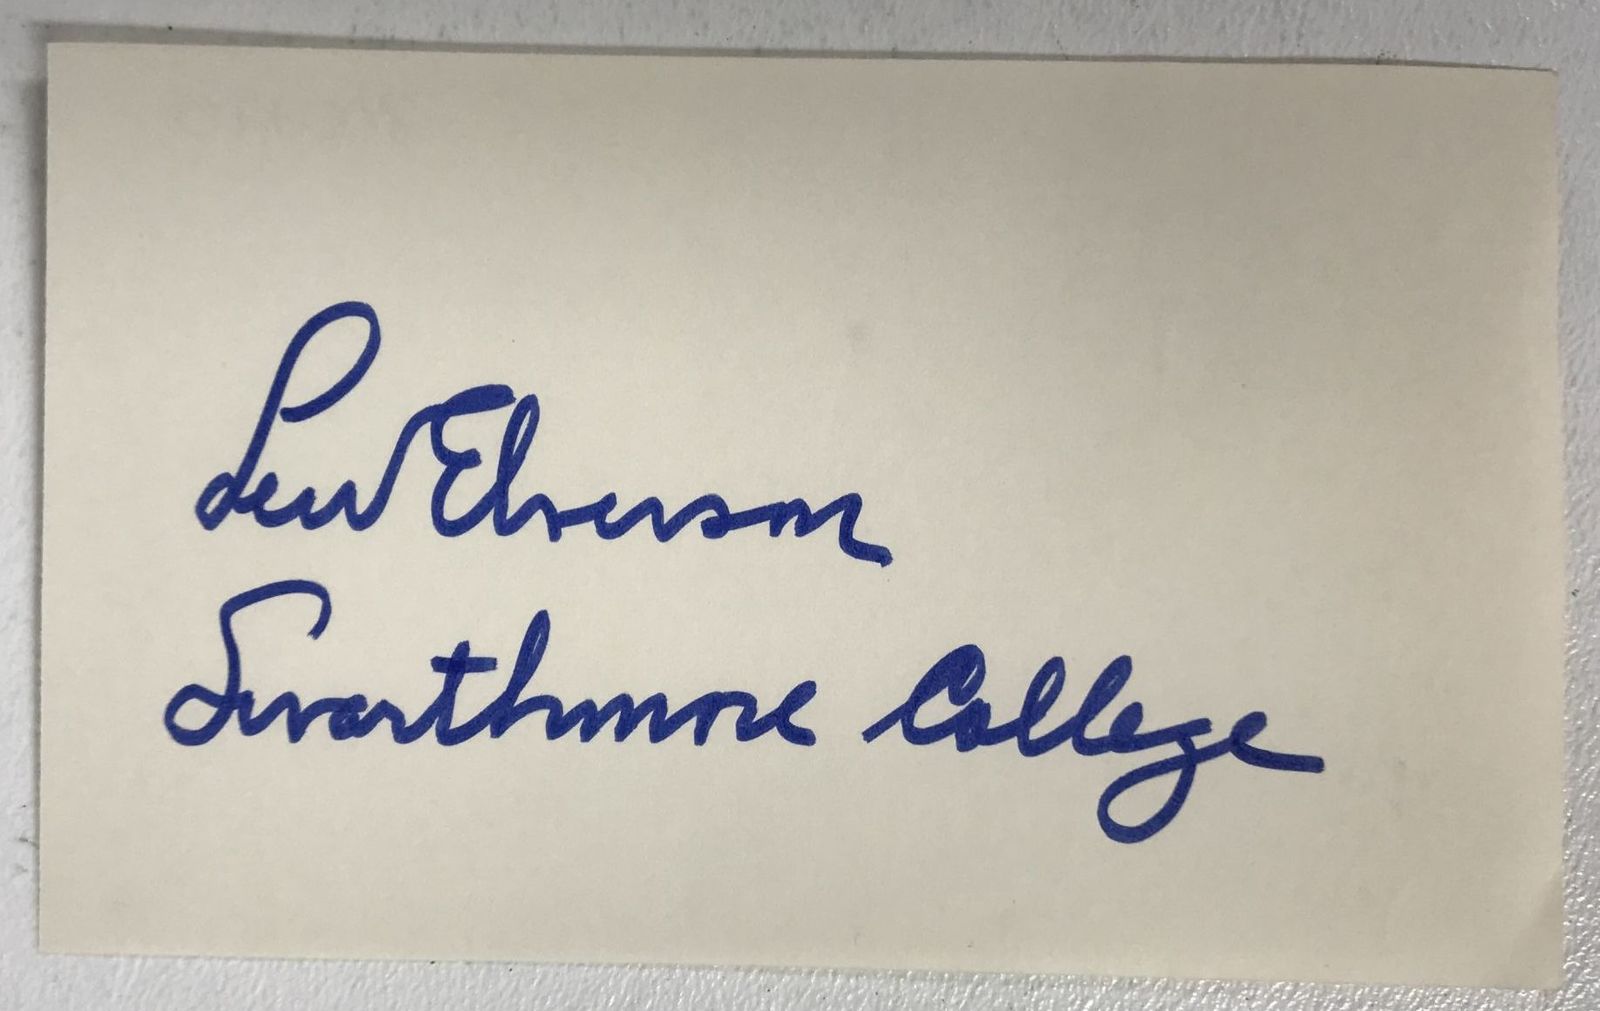 Lew Elverson
Swarthmore College